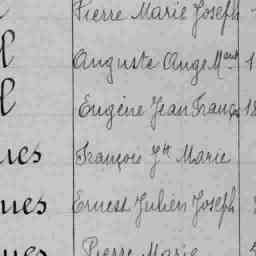 Pierre Marie Joseph
l Auguste Ange Mart 1
l Eugène Jean Franç 18
ues François Jh Marie
ues Ernest Julien Joseph
ues Pierre Marie